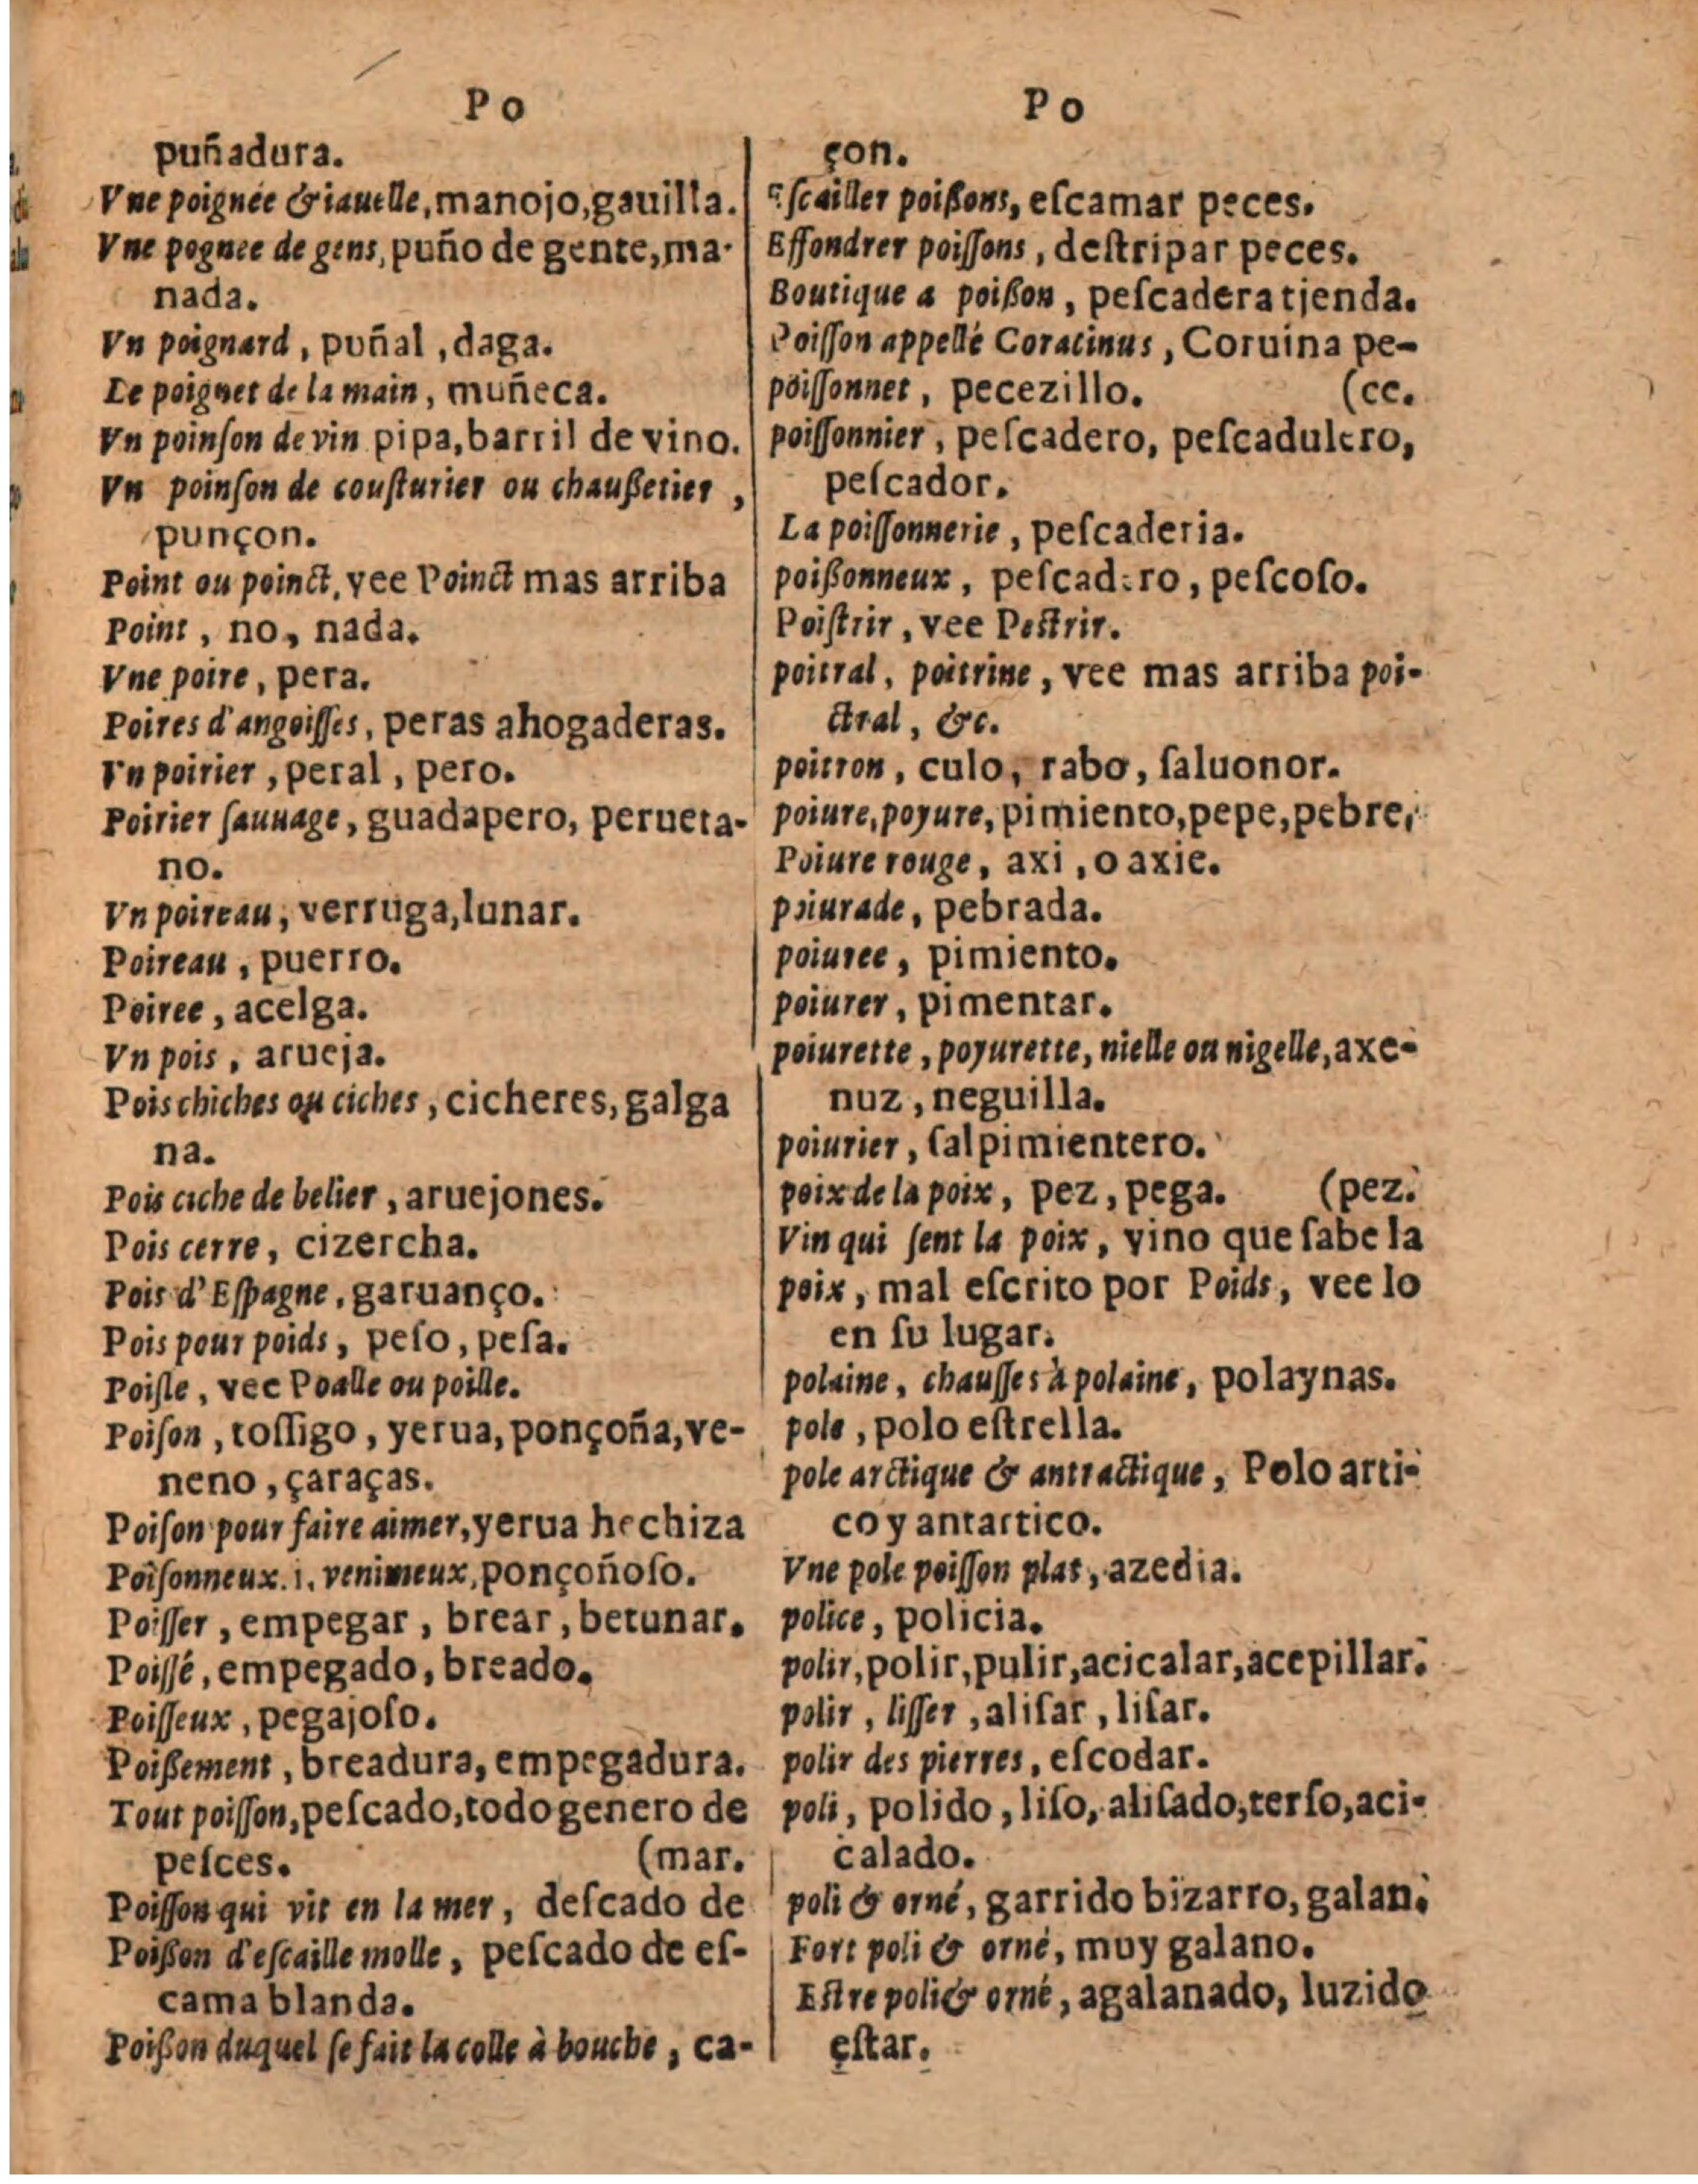 Po
puñadura.
Vne poignée & iauelle, manojo, gauilla.
Vne pognee de gens, puño de gente, ma-
nada.
Vn poignard, puñal, daga.
Le poignet de la main, muñeca.
Vn poinſon de vin pipa, barril de vino.
Vn poinſon de couſturier ou chaußetier,
punçon.
Point ou poinct, vee Poinct mas arriba
Point, no, nada.
Vne poire, pera.
Poires d'angoiſſes, peras ahogaderas.
Vn poirier, peral, pero.
Poirier ſauuage, guadapero, perueta-
no.
Vn poireau, verruga, lunar.
Poireau, puerro.
Poiree, acelga.
Vn pois, arueja.
Pois chiches ou ciches, cicheres, galga
na.
Pois ciche de belier, aruejones.
Pois cerre, cizercha.
Pois d'Eſpagne, garuanço.
Pois pour poids, peſo, peſa.
Poiſle, vee Poalle ou poille.
Poiſon, toſſigo, yerua, ponçoña, ve-
neno, çaraças.
Poiſon pour faire aimer, yerua hechiza
Poiſonneux. i. venimeux, ponçoñoſo.
Poiſſer, empegar, brear, betunar.
Poiſſé, empegado, breado.
Poiſſeux, pegajoſo.
Poißement, breadura, empegadura.
Tout poiſſon, peſcado, todo genero de
peſces. (mar.
Poiſſon qui vit en la mer, deſcado de
Poißon d'eſcaille molle, peſcado de eſ-
cama blanda.
Poißon duquel ſe fait la colle à bouche, ca-
Po
çon.
Eſcailler poißons, eſcamar peces.
Effondrer poiſſons, deſtripar peces.
Boutique a poißon, peſcadera tienda.
Poiſſon appellé Coracinus, Coruina pe-
poiſſonnet, pecezillo. (ce.
poiſſonnier, peſcadero, peſcadulero,
peſcador.
La poiſſonnerie, peſcaderia.
poißonneux, peſcadero, peſcoſo.
Poiſtrir, vee Peſtrir.
poitral, poitrine, vee mas arriba poi-
ctral, &c.
poitron, culo, rabo, ſaluonor.
poiure, poyure, pimiento, pepe, pebre,
Poiure rouge, axi, o axie.
poiurade, pebrada.
poiuree, pimiento.
poiurer, pimentar.
poiurette, poyurette, nielle ou nigelle, axe-
nuz, neguilla.
poiurier, ſalpimientero.
poix de la poix, pez, pega. (pez.
Vin qui ſent la poix, vino que ſabe la
poix, mal eſcrito por Poids, vee lo
en ſu lugar.
polaine, chauſſes à polaine, polaynas.
pole, polo eſtrella.
pole arctique & antractique, Polo arti-
co y antartico.
Vne pole poiſſon plat, azedia.
police, policia.
polir, polir, pulir, acicalar, acepillar.
polir, liſſer, aliſar, liſar.
polir des pierres, eſcodar.
poli, polido, liſo, aliſado, terſo, aci-
calado.
poli & orné, garrido bizarro, galan.
Fort poli & orné, muy galano.
Eſtre poli & orné, agalanado, luzido
eſtar.